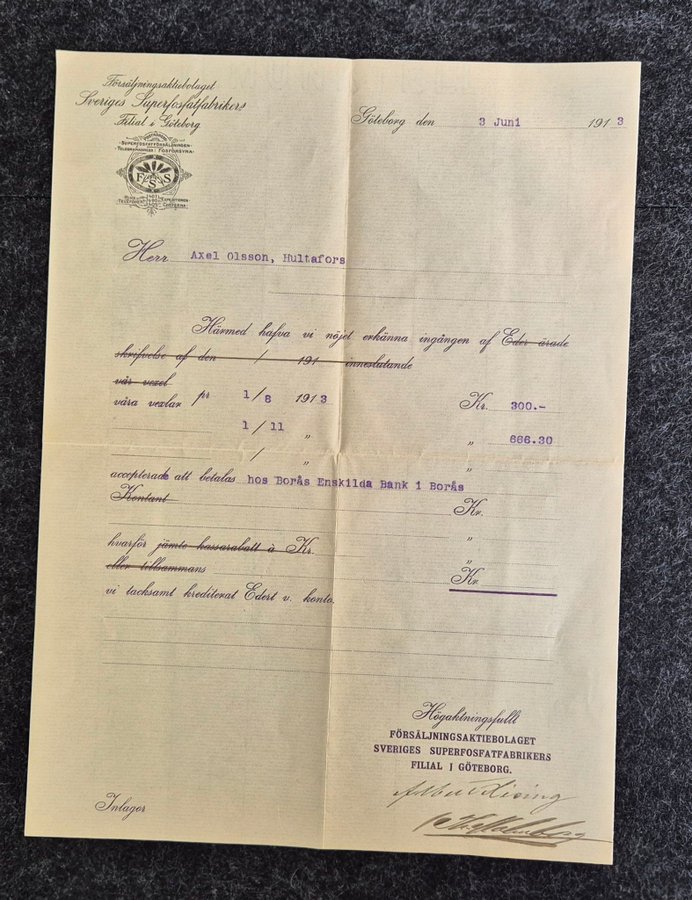 Försäljningsaktiebolaget
Sveriges Superfosfatfabrikers
Filial i Göteborg
SUPERFOSFATFÖRSÄLJNINGEN
TELEGRAMADRESS: FOSFORSYRA
F S S
Göteborg den 3 Juni 1913
Herr Axel Olsson, Hultafors
Härmed hafva vi nöjet erkänna ingången af Eder ärade
skrifvelse af den / 191 inneslutande
vår vexel
våra vexlar pr 1/8 1913 Kr. 300.-
1/11 " " 666.30
/ " "
accepterade att betalas hos Borås Enskilda Bank i Borås
Kontant Kr.
"
hvarför jämte kassarabatt à Kr. "
eller tillsammans Kr.
vi tacksamt krediterat Edert v. konto.
Högaktningsfullt
FÖRSÄLJNINGSAKTIEBOLAGET
SVERIGES SUPERFOSFATFABRIKERS
FILIAL I GÖTEBORG.
Inlagor